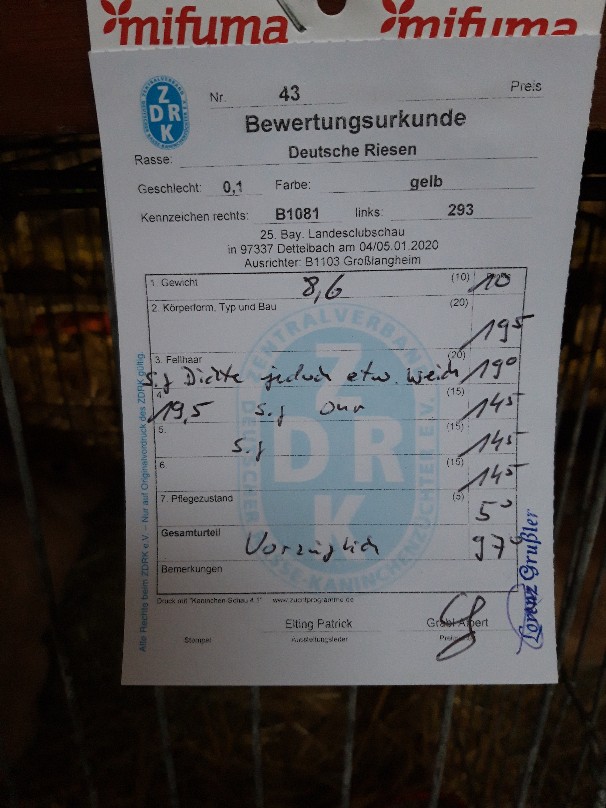 mifuma mifuma
ZDRK
Nr. 43 Preis
Bewertungsurkunde
Rasse: Deutsche Riesen
Geschlecht: 0,1 Farbe: gelb
Kennzeichen rechts: B1081 links: 293
25. Bay. Landesclubschau
in 97337 Dettelbach am 04/05.01.2020
Ausrichter: B1103 Großlangheim
1. Gewicht 8,6 (10) 10
2. Körperform, Typ und Bau (20) 19⁵
3. Fellhaar (20)
s.g Dichte jedoch etw. weich 19⁰
4. (15)
19,5 s.g Ohr 14⁵
5. (15)
s.g 14⁵
6. (15) 14⁵
7. Pflegezustand (5) 5⁰
Gesamturteil Vorzüglich 97⁰
Bemerkungen
Druck mit "Kaninchen Schau 4.1" www.zuchtprogramme.de
Elting Patrick Grabl Albert
Stempel Ausstellungsleiter
Alle Rechte beim ZDRK e.V. – Nur auf Originalvordruck des ZDRK gültig.
Lorenz Grußler
ZENTRALVERBAND DEUTSCHER RASSE-KANINCHENZÜCHTER E.V.
ZDRK